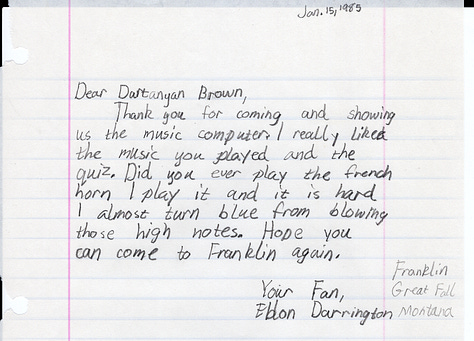 Jan. 15, 1985
Dear Dartanyan Brown,
Thank you for coming and showing
us the music computer. I really liked
the music you played and the
quiz. Did you ever play the french
horn I play it and it is hard
I almost turn blue from blowing
those high notes. Hope you
can come to Franklin again.
Your Fan,
Darrington
Franklin
Great Fall
Montana